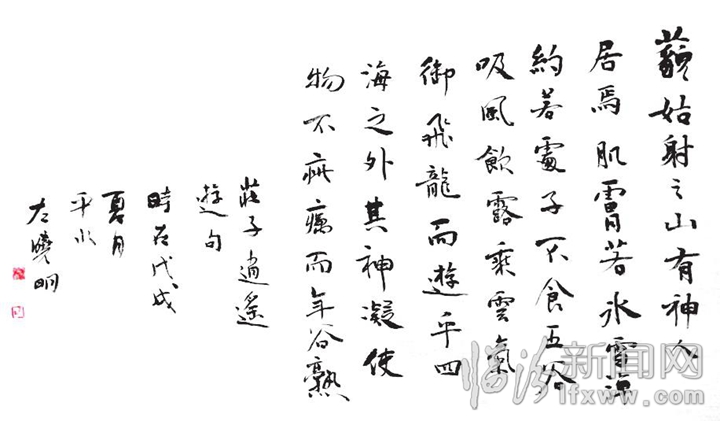 藐姑射之山有神人
居焉肌膚若冰雪淖
約若處子不食五谷
吸風飲露乘雲氣
御飛龍而遊乎四
海之外其神凝使
物不疵癘而年谷熟
莊子逍遙
遊句
時在戊戌
夏月
平水
左曉明
临汾新闻网
lfxww.com